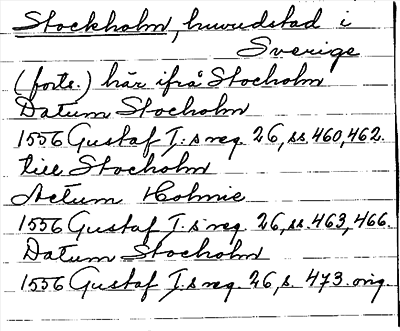 Stockholm, huvudstad i
Sverige
(forts.) här ifrå Stocholm
Datum Stocholm
1556 Gustaf I:s reg. 26, ss. 460, 462.
till Stocholm
Actum Holmie
1556 Gustaf I:s reg. 26, ss. 463, 466.
Datum Stocholm
1556 Gustaf I:s reg. 26, s. 473. orig.